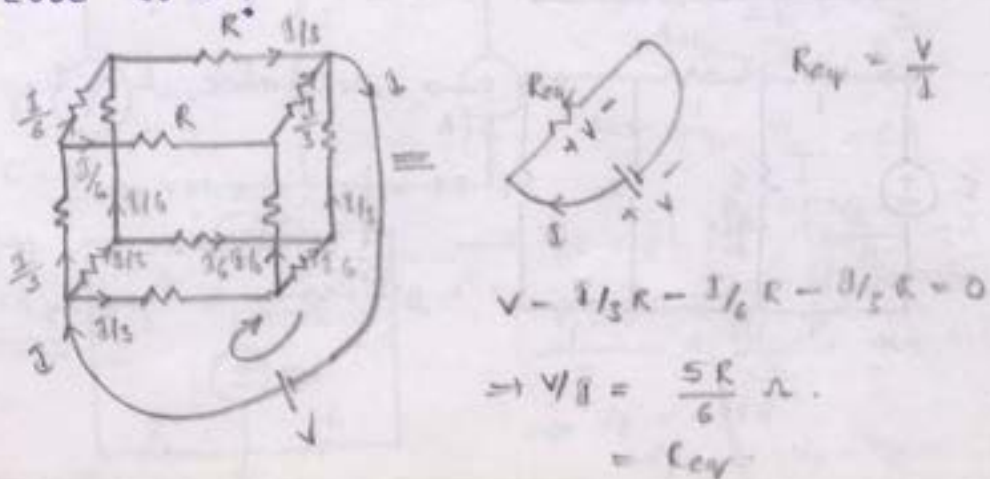 R
I/3
I
I/6
R
I/3
I/6
I/3
I/3
I/3
I/6
I/6
I/6
I/3
I/3
I
V
Req
+ V -
I
+ V -
Req = V/I
V - I/3 R - I/6 R - I/3 R = 0
⇒ V/I = 5R/6 Ω.
= Req